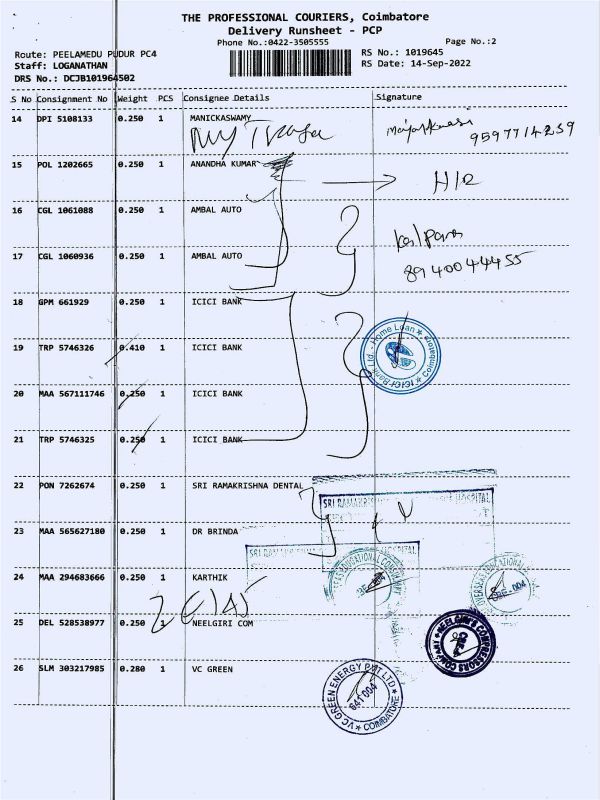 THE PROFESSIONAL COURIERS, Coimbatore
Delivery Runsheet - PCP
Phone No.:0422-3505555
Page No.:2
Route: PEELAMEDU PUDUR PC4
Staff: LOGANATHAN
DRS No.: DCJB101964502
RS No.: 1019645
RS Date: 14-Sep-2022
S No Consignment No Weight PCS Consignee Details Signature
14 DPI 5108133 0.250 1 MANICKASWAMY
9597714259
15 POL 1202665 0.250 1 ANANDHA KUMAR
16 CGL 1061088 0.250 1 AMBAL AUTO
17 CGL 1060936 0.250 1 AMBAL AUTO
8940044455
18 GPM 661929 0.250 1 ICICI BANK
19 TRP 5746326 0.410 1 ICICI BANK
ICICI Bank Ltd. - Home Loan Coimbatore
20 MAA 567111746 0.250 1 ICICI BANK
21 TRP 5746325 0.250 1 ICICI BANK
22 PON 7262674 0.250 1 SRI RAMAKRISHNA DENTAL
SRI RAMAKRISHNA HOSPITAL
23 MAA 565627180 0.250 1 DR BRINDA
24 MAA 294683666 0.250 1 KARTHIK
25 DEL 528538977 0.250 1 NEELGIRI COM
26 SLM 303217985 0.280 1 VC GREEN
VC GREEN ENERGY PVT LTD
641 004
COIMBATORE